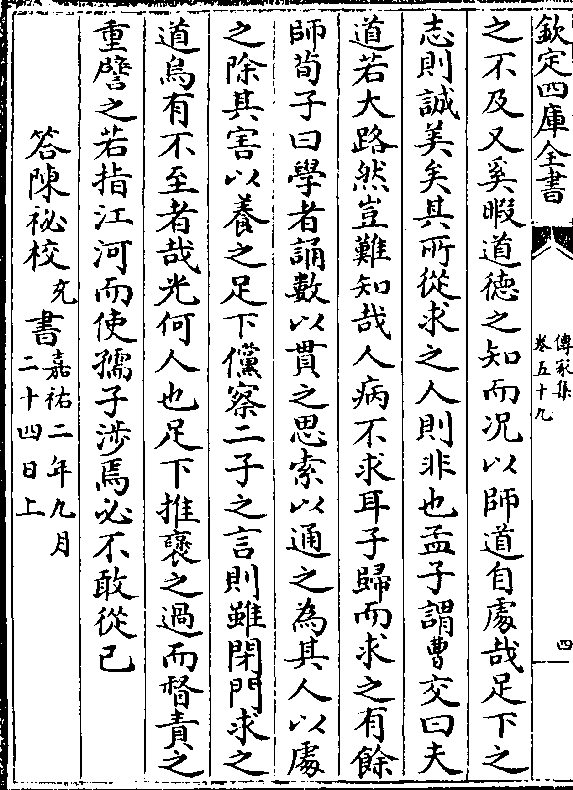 欽定四庫全書
傳家集
卷五十九
四
之不及又奚暇道德之知而况以師道自處哉足下之
志則誠美矣其所從求之人則非也孟子謂曹交曰夫
道若大路然豈難知哉人病不求耳子歸而求之有餘
師荀子曰學者誦數以貫之思索以通之為其人以處
之除其害以養之足下儻察二子之言則雖閉門求之
道烏有不至者哉光何人也足下推褒之過而督責之
重譬之若指江河而使孺子涉焉必不敢從已
答陳祕校充書嘉祐二年九月
二十四日上